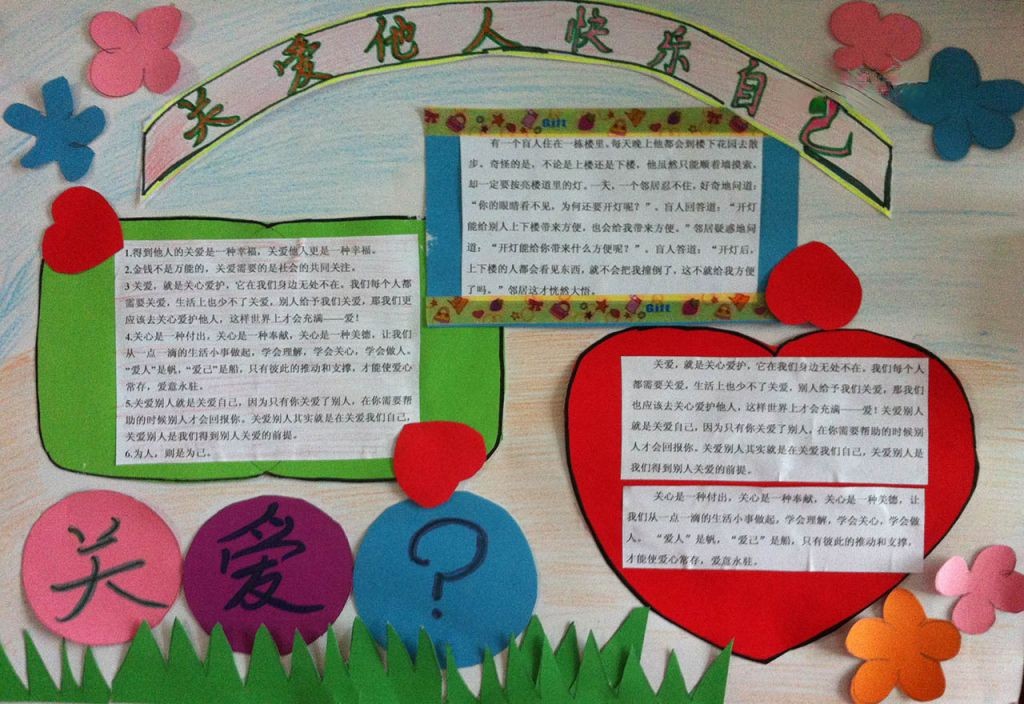 关爱他人快乐自己
Gift
有一个盲人住在一栋楼里。每天晚上他都会到楼下花园去散
步。奇怪的是，不论是上楼还是下楼，他虽然只能顺着墙摸索，
却一定要按亮楼道里的灯。一天，一个邻居忍不住，好奇地问道：
“你的眼睛看不见，为何还要开灯呢？”。盲人回答道：“开灯
能给别人上下楼带来方便，也会给我带来方便。”邻居疑惑地问
道：“开灯能给你带来什么方便呢？”。盲人答道：“开灯后，
上下楼的人都会看见东西，就不会把我撞倒了，这不就给我方便
了吗。”邻居这才恍然大悟。
Gift
1.得到他人的关爱是一种幸福，关爱他人更是一种幸福。
2.金钱不是万能的，关爱需要的是社会的共同关注。
3 关爱，就是关心爱护，它在我们身边无处不在。我们每个人都
需要关爱，生活上也少不了关爱，别人给予我们关爱，那我们更
应该去关心爱护他人，这样世界上才会充满——爱！
4.关心是一种付出，关心是一种奉献，关心是一种美德，让我们
从一点一滴的生活小事做起，学会理解，学会关心，学会做人。
“爱人”是帆，“爱己”是船，只有彼此的推动和支撑，才能使爱心
常存，爱意永驻。
5.关爱别人就是关爱自己，因为只有你关爱了别人，在你需要帮
助的时候别人才会回报你。关爱别人其实就是在关爱我们自己，
关爱别人是我们得到别人关爱的前提。
6.为人，则是为己。
关爱，就是关心爱护，它在我们身边无处不在。我们每个人
都需要关爱，生活上也少不了关爱，别人给予我们关爱，那我们
也应该去关心爱护他人，这样世界上才会充满——爱！关爱别人
就是关爱自己，因为只有你关爱了别人，在你需要帮助的时候别
人才会回报你。关爱别人其实就是在关爱我们自己，关爱别人是
我们得到别人关爱的前提。
关心是一种付出，关心是一种奉献，关心是一种美德，让
我们从一点一滴的生活小事做起，学会理解，学会关心，学会做
人。“爱人”是帆，“爱己”是船，只有彼此的推动和支撑，
才能使爱心常存，爱意永驻。
关爱？